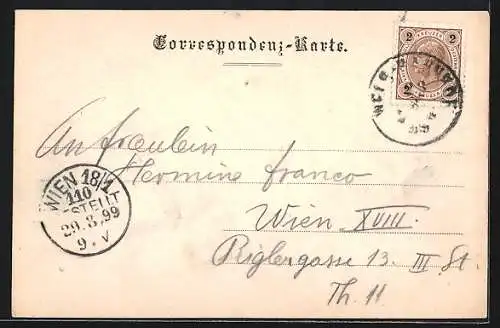 Correspondenz-Karte.
2 KREUZER 2
An Fräulein
Hermine Franco
Wien XVIII.
Riglergasse 13. III St.
Th. 11
WIEN 18/1
110
BESTELLT
29.3.99
9.V